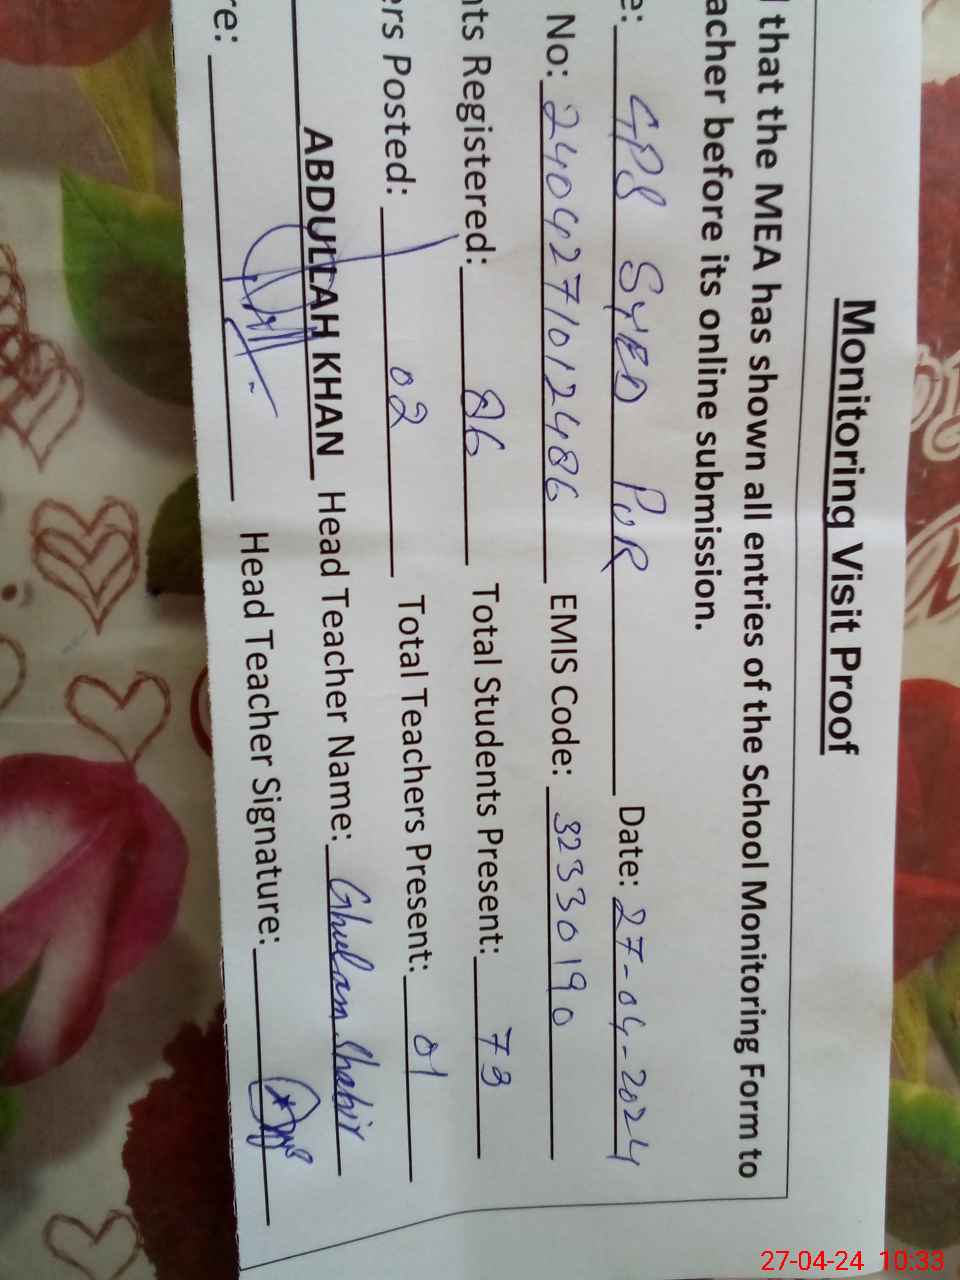 Monitoring Visit Proof
that the MEA has shown all entries of the School Monitoring Form to
acher before its online submission.
e: GPS SYED PUR Date: 27-04-2024
No: 2404271012486 EMIS Code: 32330190
nts Registered: 86 Total Students Present: 73
ers Posted: 02 Total Teachers Present: 01
ABDULLAH KHAN Head Teacher Name: Ghulam Shabir
re: Head Teacher Signature:
27-04-24 10:33